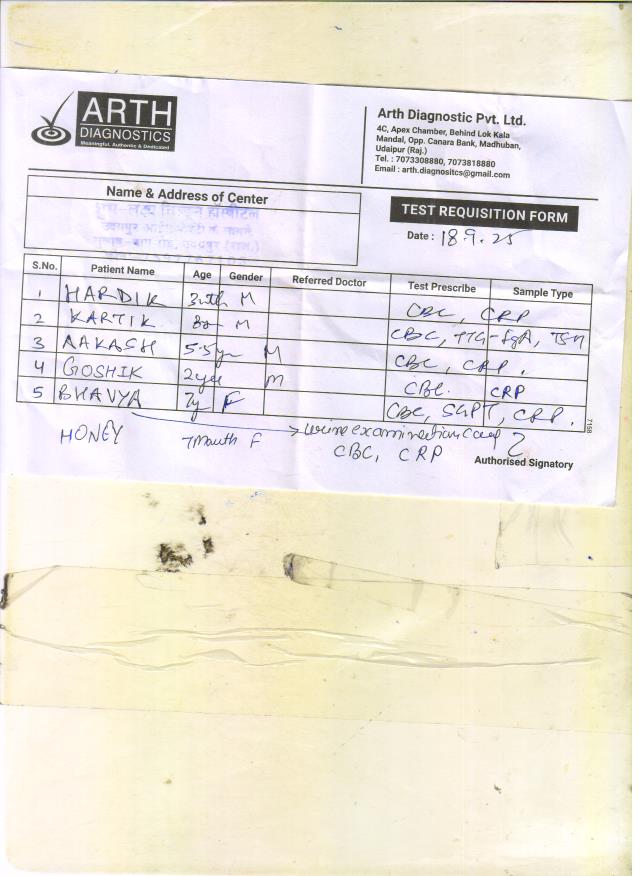 ARTH
DIAGNOSTICS
Meaningful, Authentic & Dedicated
Arth Diagnostic Pvt. Ltd.
4C, Apex Chamber, Behind Lok Kala
Mandal, Opp. Canara Bank, Madhuban,
Udaipur (Raj.)
Tel. : 7073308880, 7073818880
Email : arth.diagnositcs@gmail.com
Name & Address of Center
TEST REQUISITION FORM
Date : 18.9.25
S.No. Patient Name Age Gender Referred Doctor Test Prescribe Sample Type
1 HARDIK M CBC, CRP
2 KARTIK M CBC, TTG-IgA, TSH
3 AAKASH 5.5yr M CBC, CRP.
4 GOSHIK 2year M CBC. CRP
5 BHAVYA 7y F CBC, SGPT, CRP.
urine examination
HONEY 7 Month F CBC, CRP
Authorised Signatory
7158